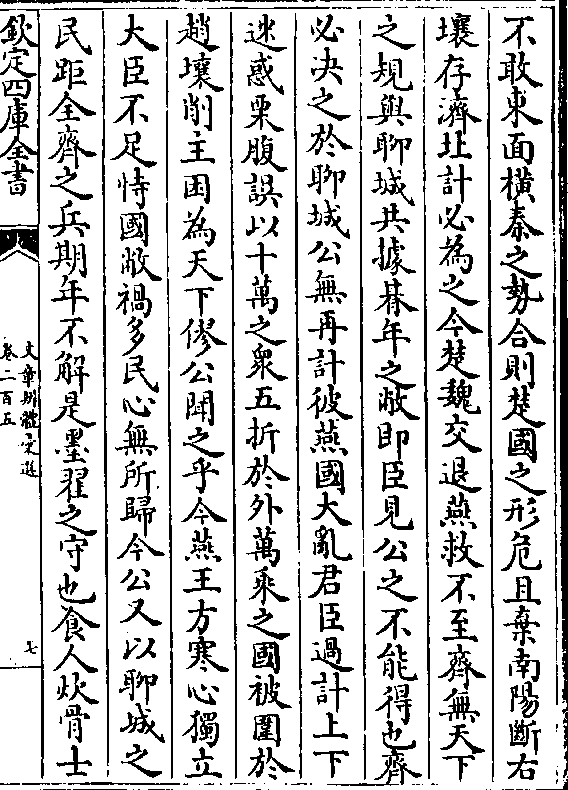 不敢東面橫秦之勢合則楚國之形危且棄南陽斷右
壤存濟北計必為之今楚魏交退燕救不至齊無天下
之規與聊城共據朞年之敝即臣見公之不能得也齊
必决之於聊城公無再計彼燕國大亂君臣過計上下
迷惑栗腹誤以十萬之衆五折於外萬乗之國被圍於
趙壤削主困為天下僇公聞之乎今燕王方寒心獨立
大臣不足恃國敝禍多民心無所歸今公又以聊城之
民距全齊之兵期年不解是墨翟之守也食人炊骨士
欽定四庫全書
文章辨體彚選
卷二百五
七